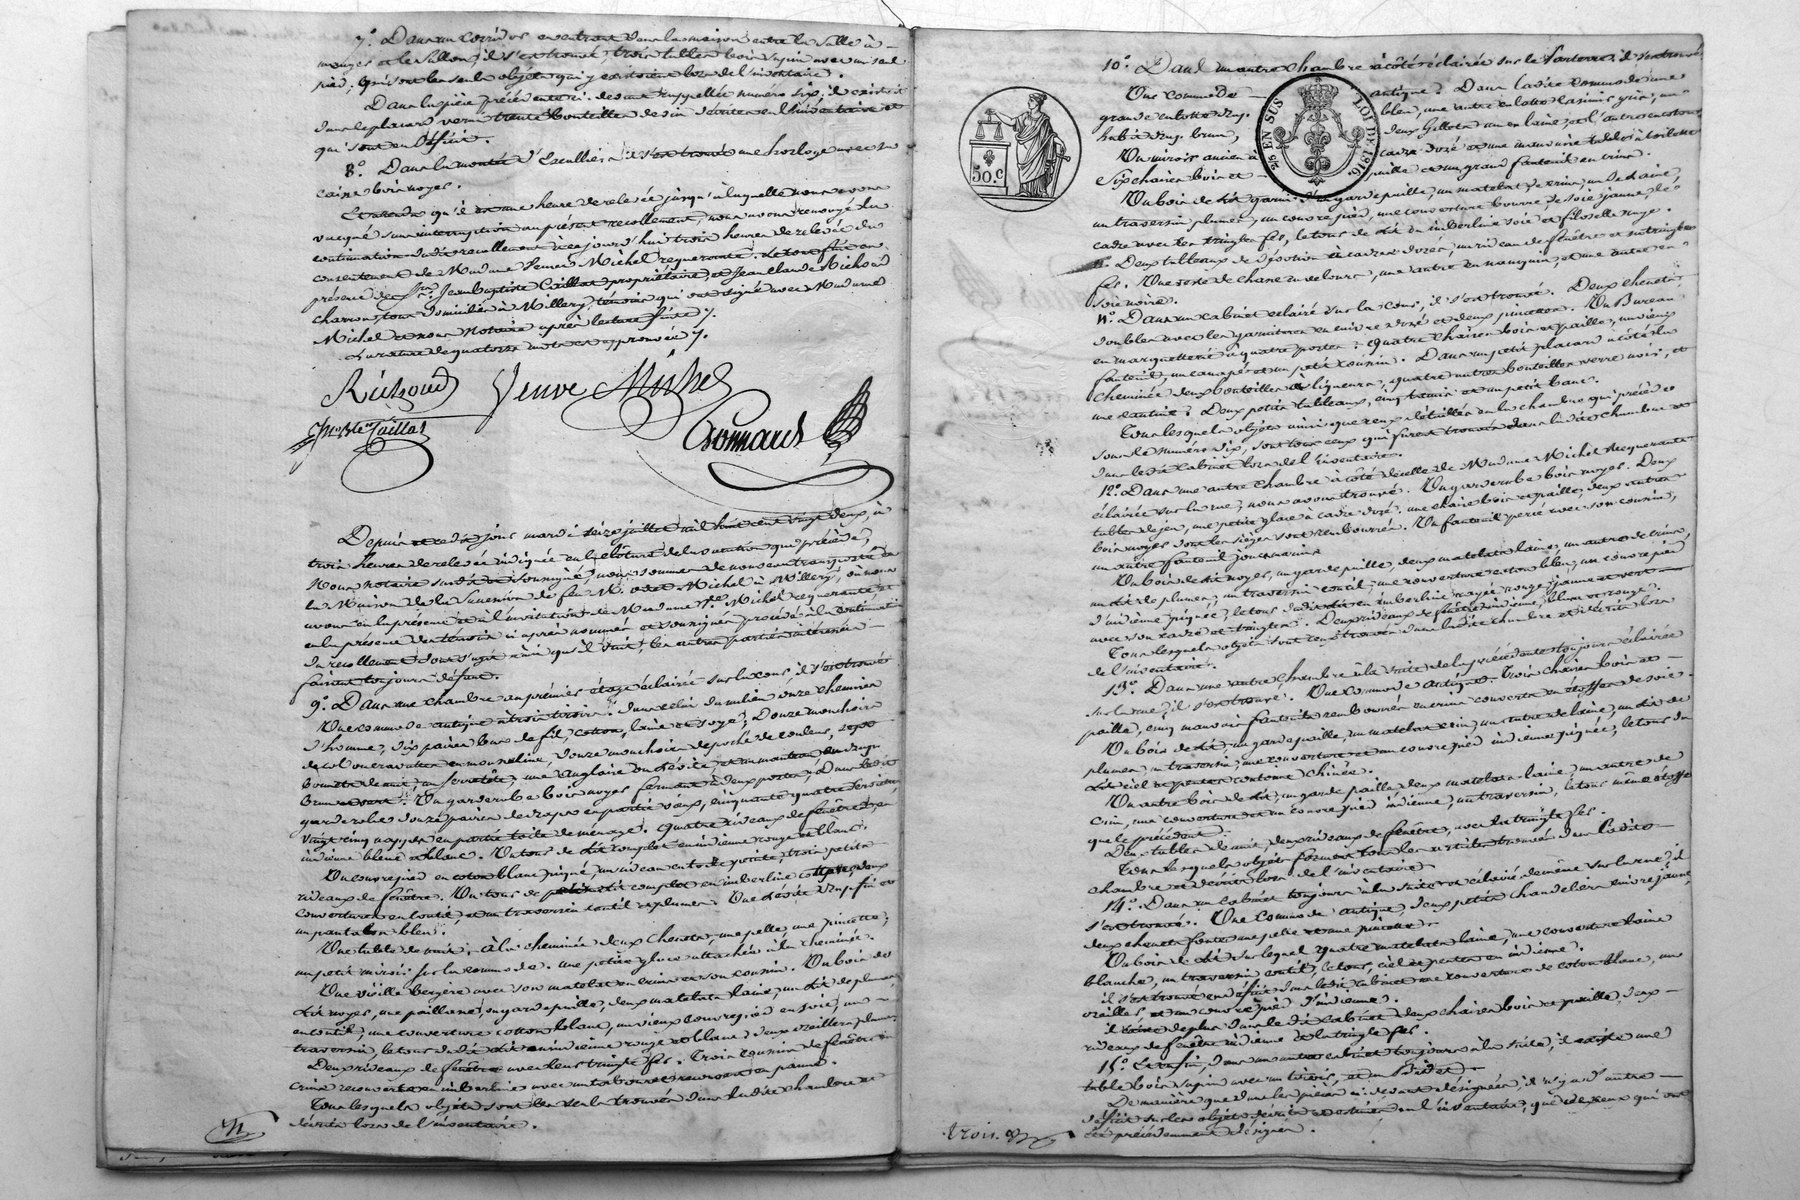 7.° Dans un corridor en entrant dans la maison entre la salle à
manger et le sallon, il s'est trouvé, trois tables bois sapin avec un seul
pied. Qui sont les seuls objets qui y existoient lors de l'inventaire.
Dans la pièce précédente ci-dessus rappellée numéro six, il existoit
dans le placard verni trente bouteilles de vin décrites en l'inventaire et
qui sont en déficit.
8.° Dans la montée d'Escallier, il s'est trouvé une horloge avec sa
caisse bois noyer.
Et attendu qu'il est une heure de relevée jusqu'à laquelle nous avons
vacqué sans interruption au présent recollement, nous avons renvoyé la
continuation du dit recollement à ce jourd'hui trois heures de relevée du
consentement de Madame Veuve Michel requerante. Le tout fait en
présence de S.rs Jean Baptiste Caillat propriétaire, et Jean Claude Richoud
charron, tous domiciliés à Millery, témoins qui ont signé avec Madame
Michel et nous Notaire après lecture faite /.
La rature de quatorze mots est approuvée /.
Richoud Veuve Michel
Jn Bte Caillat
Depuis et ce dit jour mardi seize juillet mil huit cent vingt deux, à
trois heures de relevée indiquée en la clôture de la vacation qui précède,
Nous Notaire susdit et soussigné, nous sommes de nouveau transporté dans
la Maison de la Succession de feu M. Michel à Millery, où nous
avons en la présence et à l'invitation de Madame V.e Michel requerante et
en la présence des témoins ci après nommés et soussignés procédé à la continuation
du recollement dont s'agit ainsi qu'il suit, les autres parties intéressées
faisant toujours défaut.
9.° Dans une chambre au premier étage éclairée sur la cour, il s'est trouvé
Une commode antique à trois tiroirs. Dans celui du milieu onze chemises
d'homme, dix paires bas de fil, cotton, laine et soye; Douze mouchoirs
de col ou cravattes en mousseline, douze mouchoirs de poche de couleur, sept
bonnets de nuit, un serre tête, une anglaise ou Lévite, et un manteau en drap
brun et vert. Un garderobe bois noyer fermant à deux portes; Dans le dit
garderobe douze paires de draps en partie usés, cinquante quatre serviettes,
vingt cinq nappes en partie toile de ménage. Quatre rideaux de fenêtre en
indienne bleue et blanc. Un tour de lit complet en indienne rouge et blanc.
Un couvrepied en coton blanc piqué, un rideau en toile peinte, trois petits
rideaux de fenêtre. Un tour de lit complet en imberline
couvertures en et un traversin coutil et plumes. Une Lévite drap fin et
un pantalon bleu.
Une table de nuit. À la cheminée deux chenets, une pelle, une pincette;
un petit miroir sur la commode. une petite glace attachée à la cheminée.
Une vieille bergère avec son matelat en crin et son coussin. Un bois de
lit noyer, une paillasse, un garde paille, deux matelats laine, un lit de plumes
en coutil, une couverture cotton blanc, un vieux couvrepied en soie, un
traversin, le tour du dit lit en indienne rouge et blanc, deux oreillers plumes
Deux rideaux de fenêtre avec leurs tringles fer. Trois coussins de fenêtre en
crin recouverts en imberline avec un tabouret recouvert en panne.
Tous lesquels objets sont les seuls trouvés dans la dite chambre et
décrits lors de l'inventaire.
10.° Dans une autre chambre à côté éclairée sur le parterre, il s'est trouvé
50.C
25 EN SUS LOI DE 1816.
Une commode antique; Dans la dite commode une
grande culotte drap bleu, une autre culotte casimir gris, un
habit drap brun, deux gillets un en laine, et l'autre en coton
Un miroir ancien à cadre doré et une mauvaise table à toilette
Six chaises bois et paille et un grand fauteuil en crin.
Un bois de lit garni d'un garde paille, un matelat de crin, un de laine,
un traversin plumes, un couvre pied, une couverture bourre de soie jaune, le
cadre avec les tringles fer, le tour de lit en imberline soie et filoselle rouge.
Deux tableaux de dévotion à cadres dorés; un rideau de fenêtre et sa tringle en
fer. Une veste de chasse en velours, une autre en nanquin, et une autre en
soie noire.
11.° Dans un cabinet éclairé sur la cour, il s'est trouvé. Deux chenets
doubles avec les garnitures en cuivre doré et deux pincettes. Un Bureau
en marquetterie à quatre portes; Quatre chaises bois et paille, un vieux
fauteuil, un canapé et un petit coussin. Dans un petit placard à côté de la
cheminée deux bouteilles de liqueurs, quatre autres bouteilles verre noir, et
une cantine; Deux petits tableaux, cinq et un petit banc.
Tous lesquels objets ainsi que ceux détaillés en la chambre qui précède
sous le numéro dix, sont tous ceux qui furent trouvés dans la dite chambre et
dans le dit cabinet lors de l'inventaire.
12.° Dans une autre chambre à côté de celle de Madame Michel Requerante
éclairée sur la rue, nous avons trouvé. Un garderobe bois noyer. Deux
tables de jeu, une petite glace à cadre doré, une chaise bois et paille, deux autres
bois noyer dont les sièges sont rembourrés. Un fauteuil percé avec son coussin,
un autre fauteuil jonc
Un bois de lit noyer, un garde paille, deux matelats laine, un autre de crin,
un lit de plumes, un traversin coutil, une couverture coton bleu, un couvre pied
d'indienne piquée, le tour du dit lit en imberline rayée rouge, jaune et vert
avec son cadre et tringles. Deux rideaux de fenêtre indienne, bleue et rouge.
Tous lesquels objets sont ceux trouvés dans la dite chambre et décrits lors
de l'inventaire.
13.° Dans une autre chambre à la suite de la précédente toujours éclairée
sur la rue, il s'est trouvé. Une commode antique. Trois chaises bois et
paille, cinq mauvais fauteuils rembourrés en crin couverts en étoffes de soie.
Un bois de lit, un garde paille, un matelat crin, un autre de laine, un lit de
plumes, un traversin, une couverture et un couvre pied indienne piquée, le tour du
lit ciel et pentes cotonne chinée.
Un autre bois de lit, un garde paille, deux matelats laine, un autre de
crin, une couverture et un couvre pied indienne, un traversin, le tour même étoffe
que le précédent.
Deux tables de nuit, deux rideaux de fenêtre, avec les tringles fer.
Tous lesquels objets forment tous les articles trouvés dans la dite
chambre et décrits lors de l'inventaire.
14.° Dans un cabinet toujours à la suite et éclairé de même sur la rue, il
s'est trouvé. Une commode antique, deux petits chandeliers cuivre jaune,
deux chenets fonte une pelle et une pincette.
Un bois de lit sur lequel quatre matelats laine, une couverture laine
blanche, un traversin coutil, le tour, ciel et pentes en indienne.
il s'est trouvé en déficit dans le dit cabinet une couverture de coton blanc, un
oreiller, et un couvre pied d'indienne.
il existe de plus dans le dit cabinet deux chaises bois et paille, deux
rideaux de fenêtre indienne et la tringle fer.
15.° Et enfin, dans un autre cabinet toujours à la suite, il existe une
table bois sapin avec un tiroir, et un Bidet.
De manière que dans les pièces ci-dessus désignées, il n'y a d'autre
déficit sur les objets décrits et estimés en l'inventaire, que de ceux qui ont
été précédemment désignés.
trois.